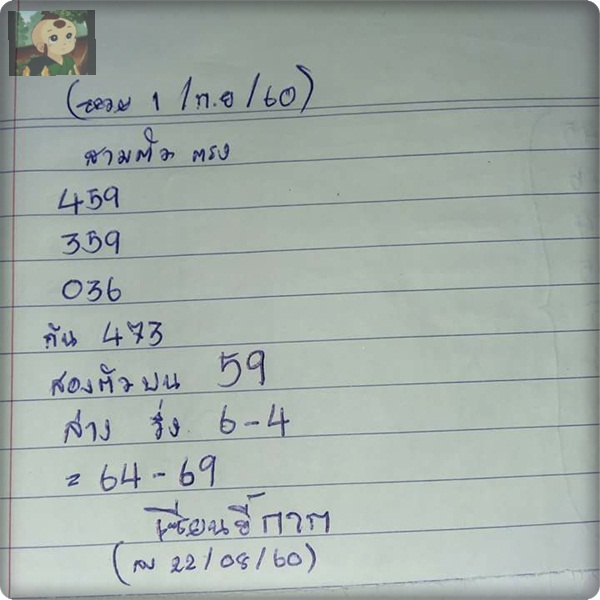 (งวด 1 /ก.ย /60)
สามตัว ตรง
459
359
036
กัน 473
สองตัวบน 59
ล่าง วิ่ง 6-4
= 64-69
เซียนขี้กาก
(ลว 22/08/60)